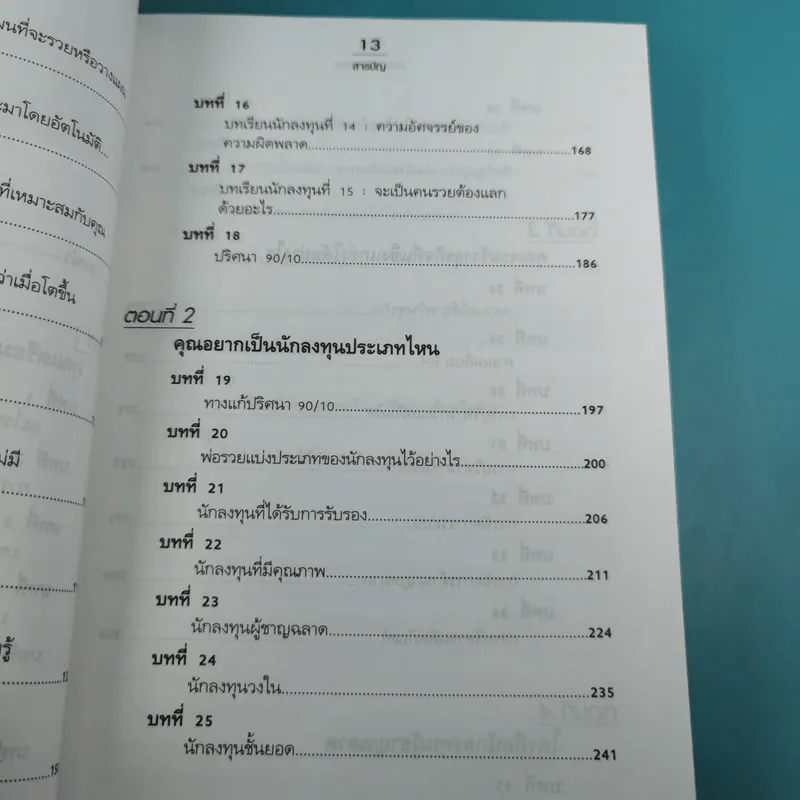 นที่จะรวยหรือวางแผน
มาโดยอัตโนมัติ...
ที่เหมาะสมกับคุณ
ว่าเมื่อโตขึ้น
13
สารบัญ
บทที่ 16
บทเรียนนักลงทุนที่ 14 : ความอัศจรรย์ของ
ความผิดพลาด...............................................168
บทที่ 17
บทเรียนนักลงทุนที่ 15 : จะเป็นคนรวยต้องแลก
ด้วยอะไร.....................................................177
บทที่ 18
ปริศนา 90/10...............................................186
ตอนที่ 2
คุณอยากเป็นนักลงทุนประเภทไหน
บทที่ 19
ทางแก้ปริศนา 90/10.......................................197
บทที่ 20
พ่อรวยแบ่งประเภทของนักลงทุนไว้อย่างไร....................200
บทที่ 21
นักลงทุนที่ได้รับการรับรอง....................................206
บทที่ 22
นักลงทุนที่มีคุณภาพ...........................................211
บทที่ 23
นักลงทุนผู้ชาญฉลาด..........................................224
บทที่ 24
นักลงทุนวงใน..................................................235
บทที่ 25
นักลงทุนชั้นยอด...............................................241